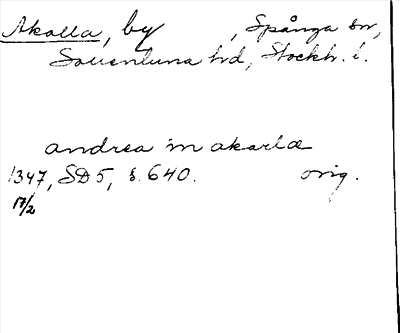 Akalla, by, Spånga sn,
Sollentuna hd, Stockh. l.
andrea in akarla
1347, SD 5, s. 640. orig.
17/2